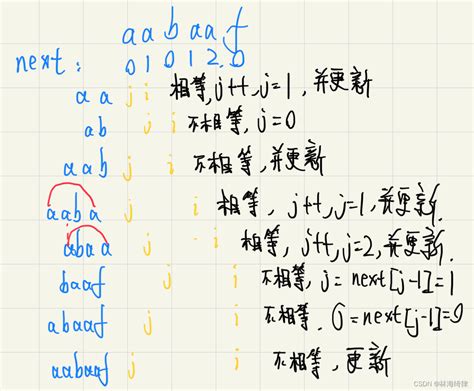 aabaaf
next: 010120
aa j i 相等,j++,j=1,并更新
ab j i 不相等,j=0
aab j i 不相等,并更新
aaba j i 相等,j++,j=1,并更新.
abaa j i 相等,j++,j=2,并更新.
baaf j i 不相等,j=next[j-1]=1
abaaf j i 不相等.j=next[j-1]=0
aabaaf j i 不相等,更新
CSDN @林海绮律